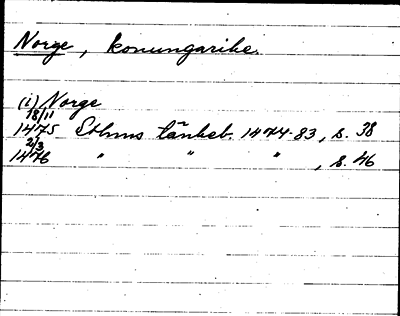 Norge, konungarike.
(i) Norge
18/11
1475 Sthms tänkeb. 1474-83, s. 38
2/3
1476 " " " , s. 46